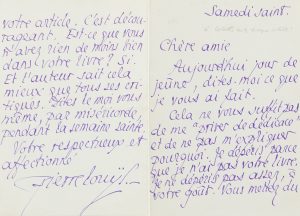 Samedi saint.
Chère amie
Aujourd'hui jour de
jeûne, dites-moi ce que
je vous ai fait.
Cela ne vous suffit pas
de me "priver de dédicace"
et de ne pas m'expliquer
pourquoi. Je dépéris parce
que je n'ai pas votre livre.
Je ne dépéris pas assez, à
votre goût. Vous mettez du
votre article. C'est décou-
rageant. Est-ce que vous
n'avez rien de moins bien
dans votre livre? Si.
Et l'auteur sait cela
mieux que tous ses cri-
tiques. Dites-le moi vous
même, par miséricorde,
pendant la semaine sainte.
Votre respectueux et
affectionné
Pierre Louÿs